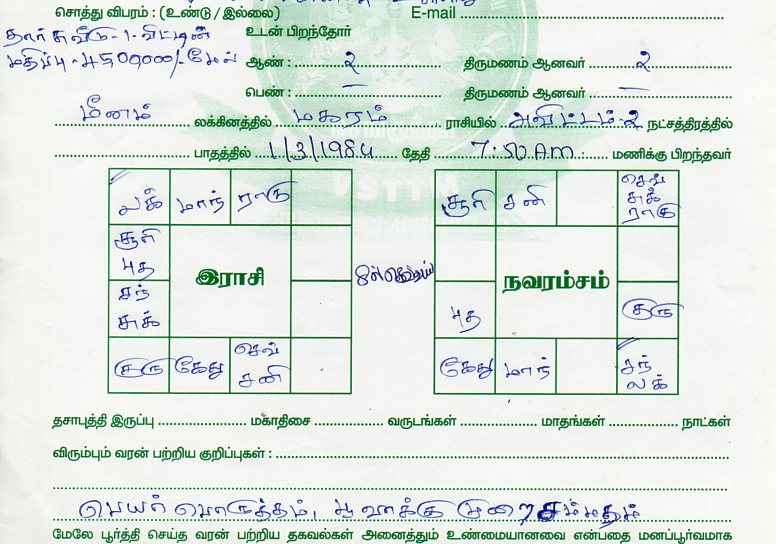 சொத்து விபரம் : (உண்டு / இல்லை) E-mail
உடன் பிறந்தோர்
மதிப்பு - 4500000/- மேல் ஆண் : 2 திருமணம் ஆனவர் 2
பெண் : — திருமணம் ஆனவர் —
மீனம் லக்கினத்தில் மகரம் ராசியில் அவிட்டம்-2 நட்சத்திரத்தில்
பாதத்தில் 1/3/1984 தேதி 7:50 A.M மணிக்கு பிறந்தவர்
லக் மாந் ராகு சூரி சனி செவ் சுக் ராகு
சூரி புத
இராசி நவரம்சம்
சந் சுக் புத குரு
குரு கேது செவ் சனி கேது மாந் சந் லக்
தசாபுத்தி இருப்பு மகாதிசை வருடங்கள் மாதங்கள் நாட்கள்
விரும்பும் வரன் பற்றிய குறிப்புகள் :
பெயர் பொருத்தம், பூ வாக்கு முறை சம்மதம்
மேலே பூர்த்தி செய்த வரன் பற்றிய தகவல்கள் அனைத்தும் உண்மையானவை என்பதை மனப்பூர்வமாக